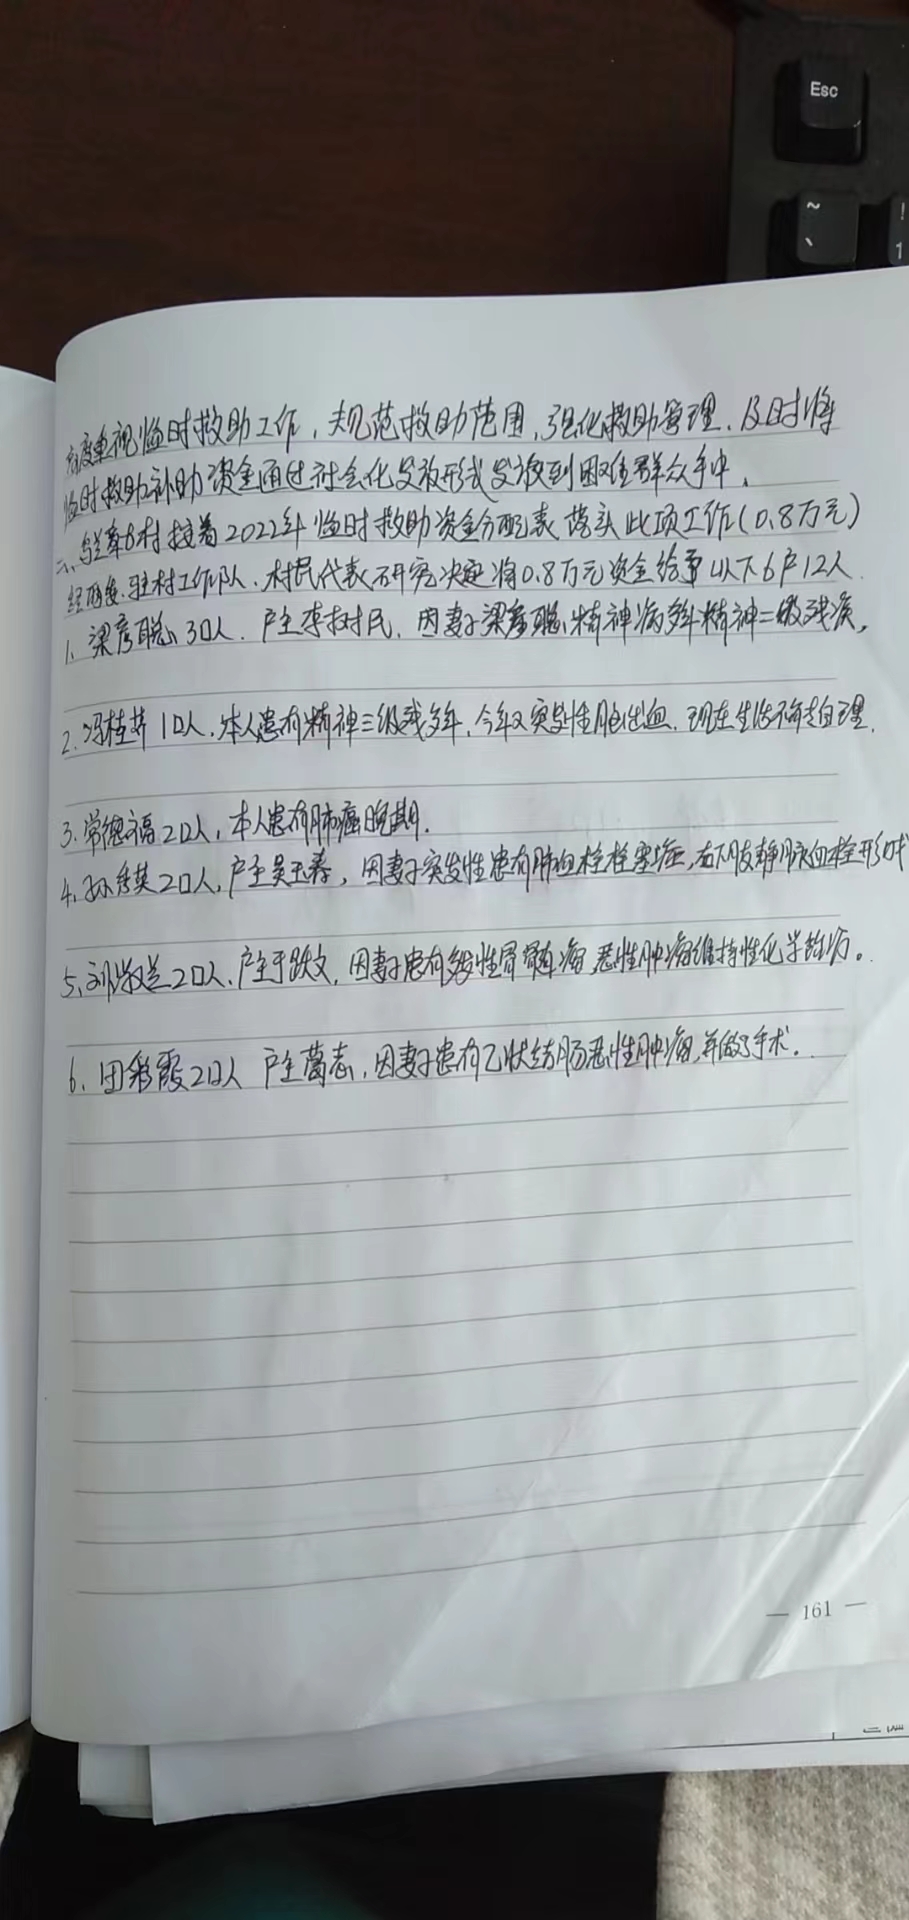 Esc
~
、
!
1
高度重视临时救助工作，规范救助范围，强化救助管理，及时将
临时救助补助资金通过社会化发放形式发放到困难群众手中。
二、村按着2022年临时救助资金分配表落实此项工作（0.8万元）
经两委、驻村工作队、村民代表研究决定将0.8万元资金给予以下6户12人
1、梁彦聪3口人，户主李树民，因妻子梁彦聪精神病多年精神二级残疾，
2、冯桂芬1口人，本人患有精神三级残多年，今年又突发性脑出血，现在生活不能自理。
3、常德福2口人，本人患有肺癌晚期。
4、孙秀英2口人，户主吴玉春，因妻子突发性患有肺血栓栓塞症，右下肢静脉血栓形成
5、刘淑兰2口人，户主于跃文，因妻子患有多发性骨髓瘤 恶性肿瘤维持性化学治疗。
6、田彩霞2口人 户主葛志，因妻子患有乙状结肠恶性肿瘤，并做了手术。
— 161 —